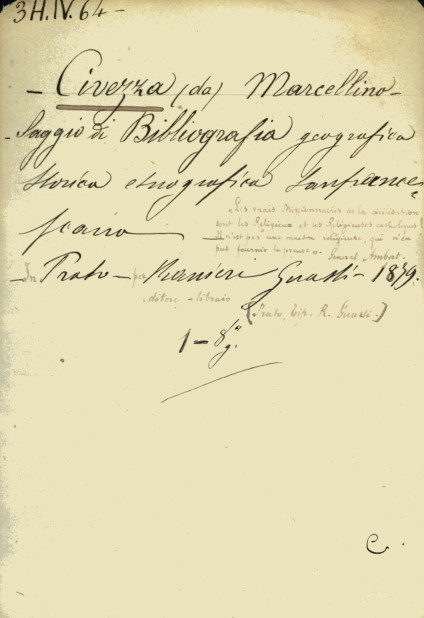 3H.IV.64-
- Civezza (da) Marcellino -
- Saggio di Bibliografia geografica
storica etnografica sanfrance-
scano
"Les vrais Missionnaires de la civilisation
sont les Religieux et les Religieuses catholiques!
Il n'est pas une mission religieuse, qui n'en
puisse fournir la preuve". General Ambert.
- In Prato - per Ranieri Guasti - 1879.
editore - libraio
(Prato, Tip. R. Guasti.)
1 - 8º
g.
C.